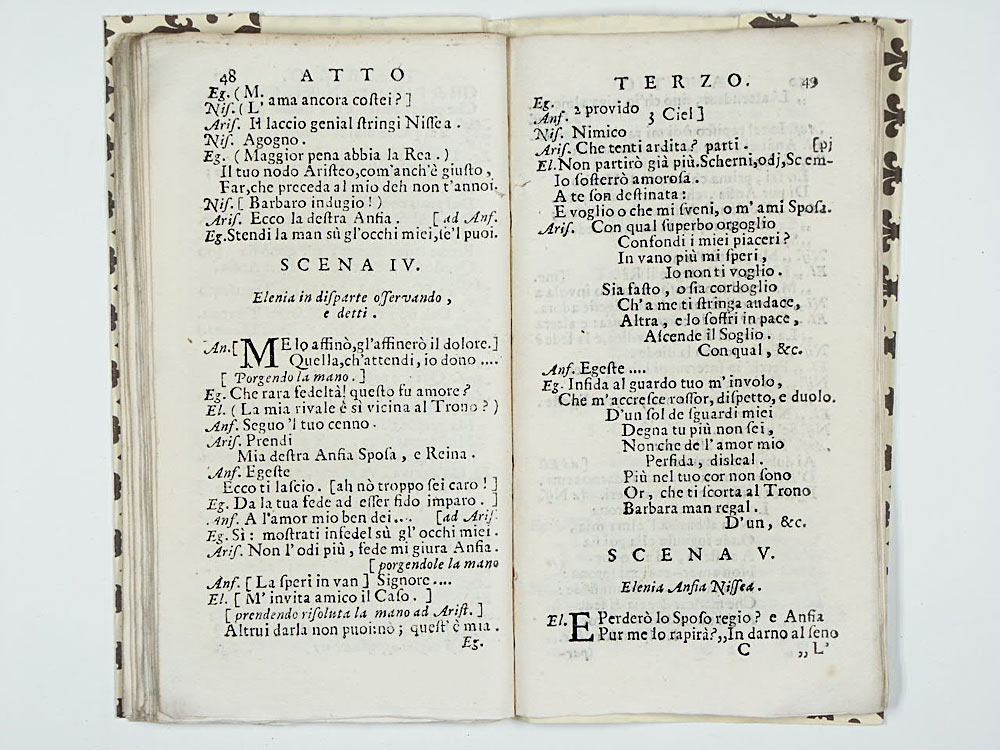 48 ATTO
Eg. (M.
Niſ. (L' ama ancora coſtei?]
Ariſ. Il laccio genial ſtringi Niſſea.
Niſ. Agogno.
Eg. (Maggior pena abbia la Rea.)
Il tuo nodo Ariſteo, com'anch'è giuſto,
Far, che preceda al mio deh non t'annoi.
Niſ. [Barbaro indugio!)
Ariſ. Ecco la deſtra Anſia. [ad Anſ.
Eg. Stendi la man sù gl'occhi miei, ſe'l puoi.
SCENA IV.
Elenia in diſparte oſſervando,
e detti.
An. [ME lo affinò, gl'affinerò il dolore.]
Quella, ch'attendi, io dono ....
[Porgendo la mano.]
Eg. Che rara fedeltà! queſto fu amore?
El. (La mia rivale è sì vicina al Trono?)
Anſ. Seguo 'l tuo cenno.
Ariſ. Prendi
Mia deſtra Anſia Spoſa, e Reina.
Anſ. Egeſte
Ecco ti laſcio. [ah nò troppo ſei caro!]
Eg. Da la tua fede ad eſſer fido imparo.]
Anſ. A l'amor mio ben dei.... [ad Ariſ.
Eg. Sì: moſtrati infedel sù gl'occhi miei.
Ariſ. Non l'odi più, fede mi giura Anſia.
[porgendole la mano
Anſ. [La ſperi in van] Signore ....
El. [M'invita amico il Caſo.]
[prendendo riſoluta la mano ad Ariſt.]
Altrui darla non puoi: nò; queſt'è mia.
Eg.
TERZO. 49
Eg.
Anſ. 2 provido
3 Ciel]
Niſ. Nimico
Ariſ. Che tenti ardita? parti. [pj
El. Non partirò già più. Scherni, odj, Scem-
Io ſoſterrò amoroſa.
A te ſon deſtinata:
E voglio o che mi ſveni, o m'ami Spoſa.
Ariſ. Con qual ſuperbo orgoglio
Confondi i miei piaceri?
In vano più mi ſperi,
Io non ti voglio.
Sia faſto, o ſia cordoglio
Ch'a me ti ſtringa audace,
Altra, e lo ſoffri in pace,
Aſcende il Soglio.
Con qual, &c.
Anſ. Egeſte ....
Eg. Infida al guardo tuo m'involo,
Che m'accreſce roſſor, diſpetto, e duolo.
D'un ſol de ſguardi miei
Degna tu più non ſei,
Non che de l'amor mio
Perfida, disleal.
Più nel tuo cor non ſono
Or, che ti ſcorta al Trono
Barbara man regal.
D'un, &c.
SCENA V.
Elenia Anſia Niſſea.
El. EPerderò lo Spoſo regio? e Anſia
Pur me lo rapirà? ,,In darno al ſeno
C ,,L'